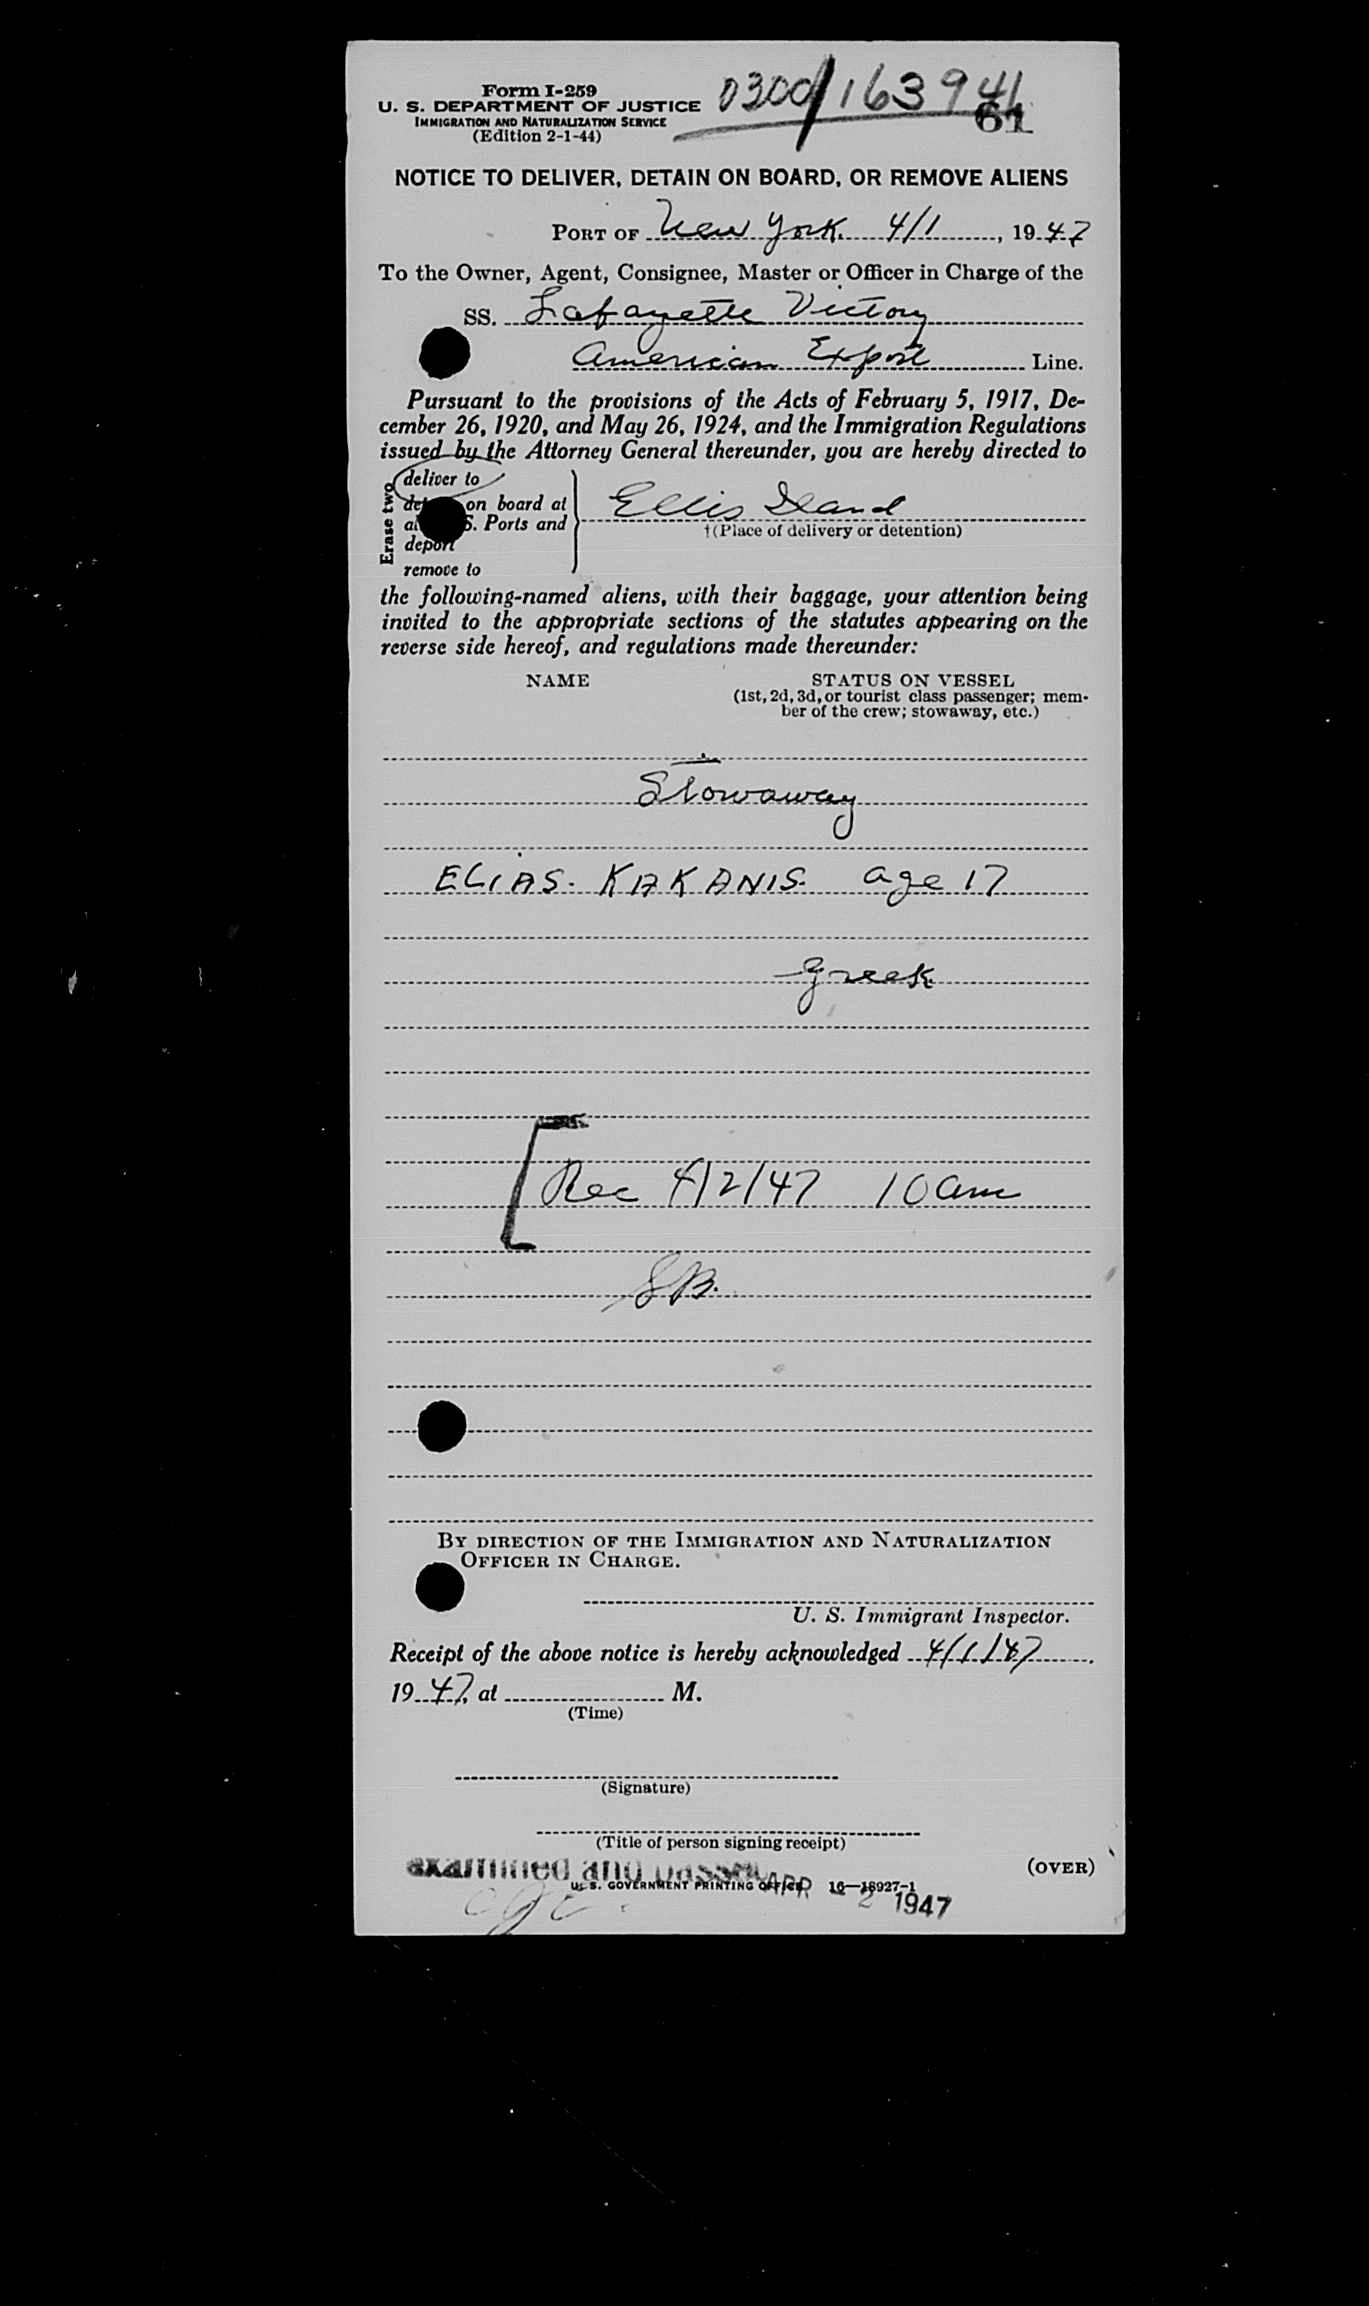 Form I-259
U. S. DEPARTMENT OF JUSTICE
IMMIGRATION AND NATURALIZATION SERVICE
(Edition 2-1-44)
0300/163941
61
NOTICE TO DELIVER, DETAIN ON BOARD, OR REMOVE ALIENS
PORT OF New York. 4/1, 1947
To the Owner, Agent, Consignee, Master or Officer in Charge of the
SS. Lafayette Victory
American Export Line.
Pursuant to the provisions of the Acts of February 5, 1917, De-
cember 26, 1920, and May 26, 1924, and the Immigration Regulations
issued by the Attorney General thereunder, you are hereby directed to
Erase two
deliver to
on board at
S. Ports and
deport
remove to
Ellis Island
†(Place of delivery or detention)
the following-named aliens, with their baggage, your attention being
invited to the appropriate sections of the statutes appearing on the
reverse side hereof, and regulations made thereunder:
NAME
STATUS ON VESSEL
(1st, 2d, 3d, or tourist class passenger; mem-
ber of the crew; stowaway, etc.)
Stowaway
ELIAS. KAKANIS. age 17
Greek
Rec 4/2/47 10 am
SB.
BY DIRECTION OF THE IMMIGRATION AND NATURALIZATION
OFFICER IN CHARGE.
U. S. Immigrant Inspector.
Receipt of the above notice is hereby acknowledged 4/1/47.
1947, at M.
(Time)
(Signature)
(Title of person signing receipt)
(OVER)
examined and passed
U. S. GOVERNMENT PRINTING OFFICE 16—18927-1
APR 2 1947